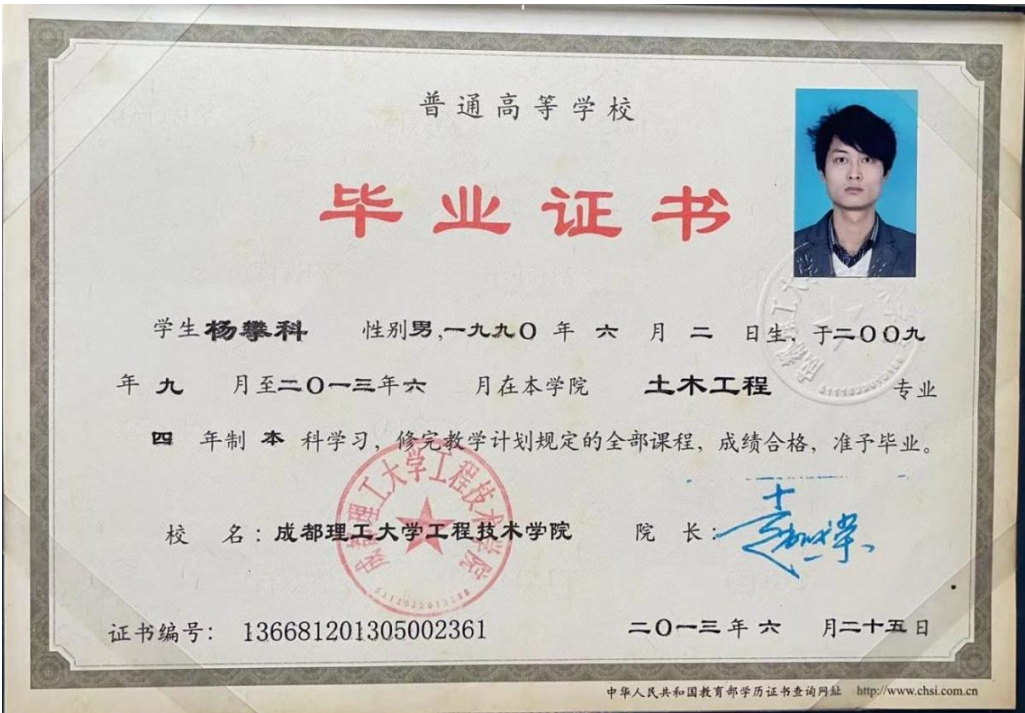 普通高等学校
毕业证书
学生 杨攀科 性别男,一九九〇年 六 月 二 日生, 于二〇〇九
年 九 月至二〇一三年六 月在本学院 土木工程 专业
四 年制 本 科学习, 修完教学计划规定的全部课程, 成绩合格, 准予毕业。
成都理工大学工程技术学院
校 名: 成都理工大学工程技术学院 院 长:
证书编号: 136681201305002361 二〇一三年六 月二十五日
中华人民共和国教育部学历证书查询网址 http://www.chsi.com.cn